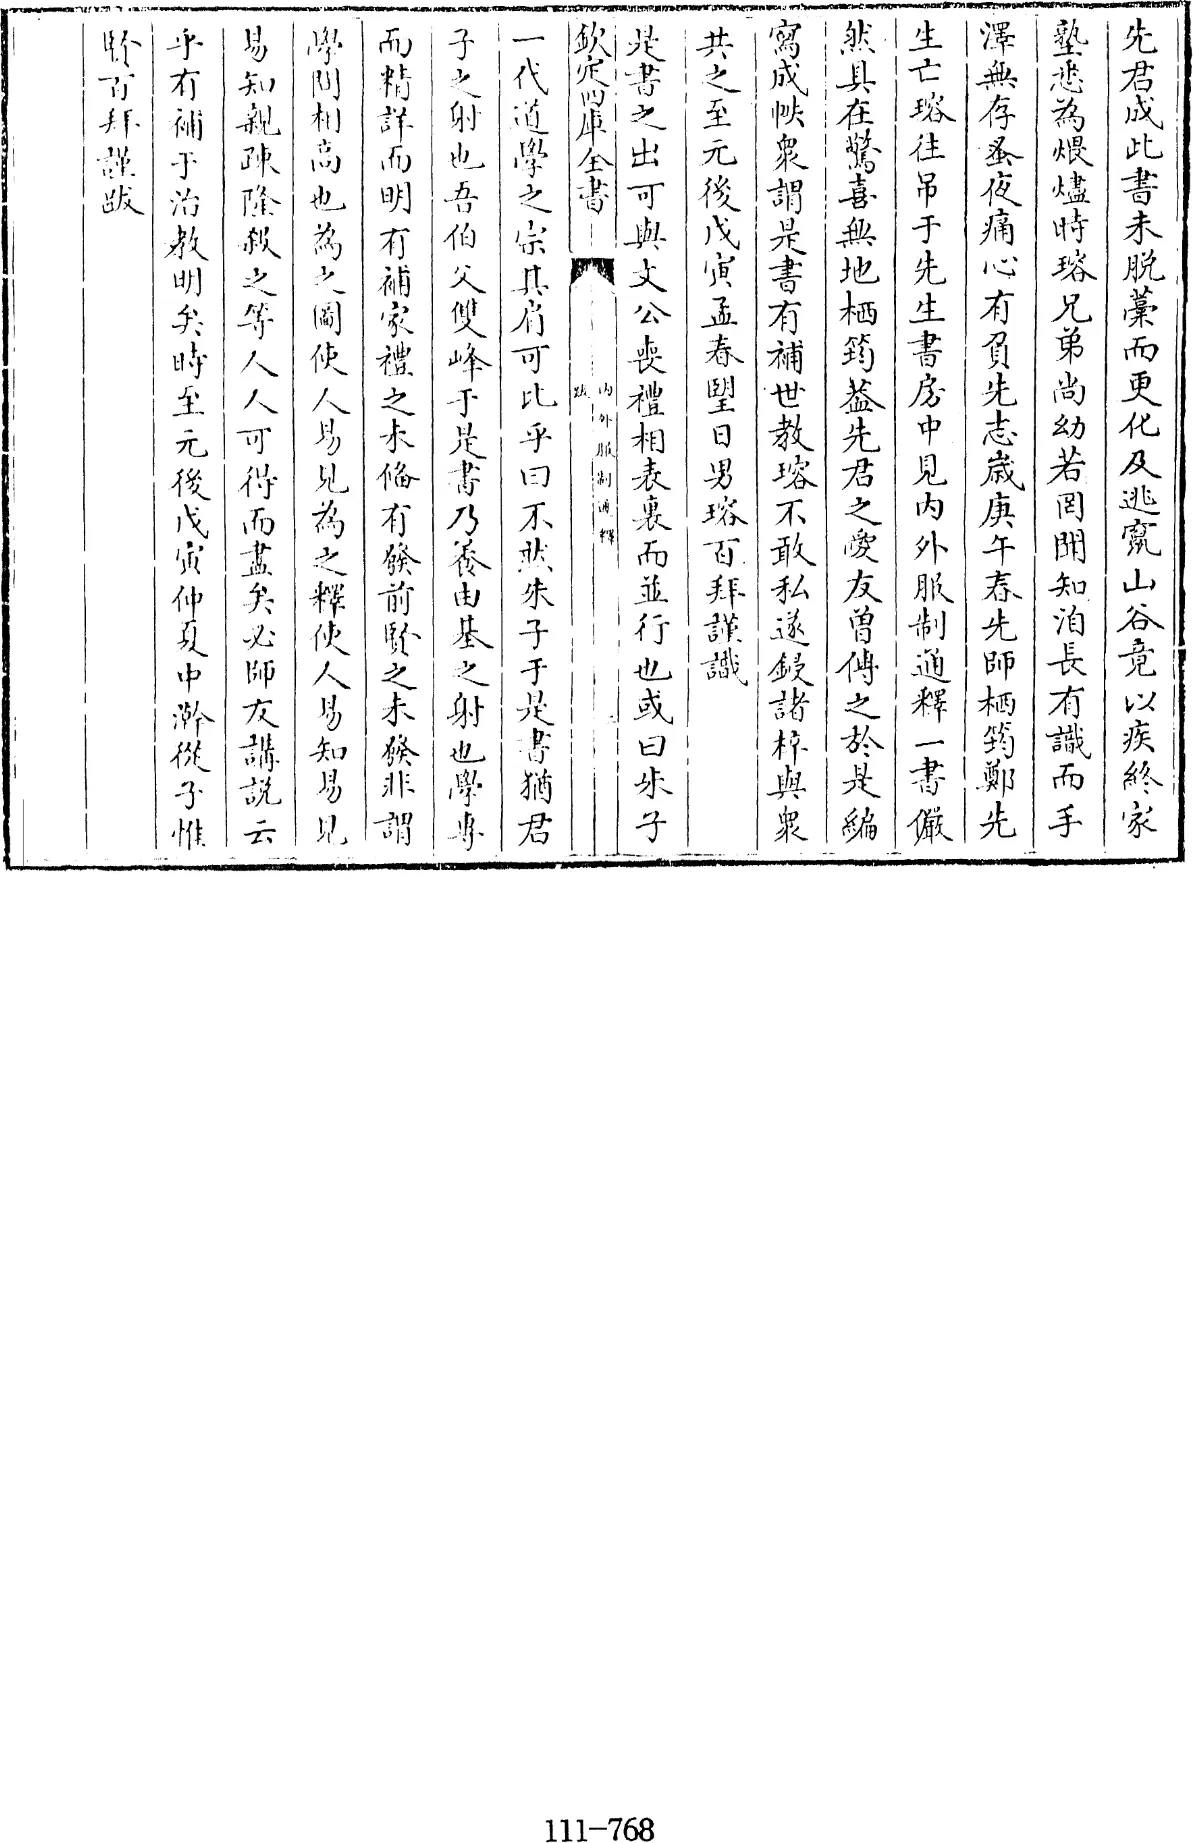 先君成此書未脱藁而更化及逃竄山谷竟以疾終家
塾悉為煨燼時瑢兄弟尚幼若罔聞知洎長有識而手
澤無存蚤夜痛心有負先志歳庚午春先師栖筠鄭先
生亡瑢往吊于先生書房中見内外服制通釋一書儼
然具在驚喜無地栖筠葢先君之愛友曾傳之於是編
寫成帙衆謂是書有補世教瑢不敢私遂鋟諸梓與衆
共之至元後戊寅孟春朢日男瑢百拜謹識
是書之出可與文公喪禮相表裏而並行也或曰朱子
欽定四庫全書
内外服制通釋
跋
一代道學之宗其肩可比乎曰不然朱子于是書猶君
子之射也吾伯父雙峰于是書乃養由基之射也學專
而精詳而明有補家禮之未備有發前賢之未發非謂
學問相高也為之圖使人易見為之釋使人易知易見
易知親疎隆殺之等人人可得而盡矣必師友講説云
乎有補于治教明矣時至元後戊寅仲夏中澣從子惟
賢百拜謹跋
111-768